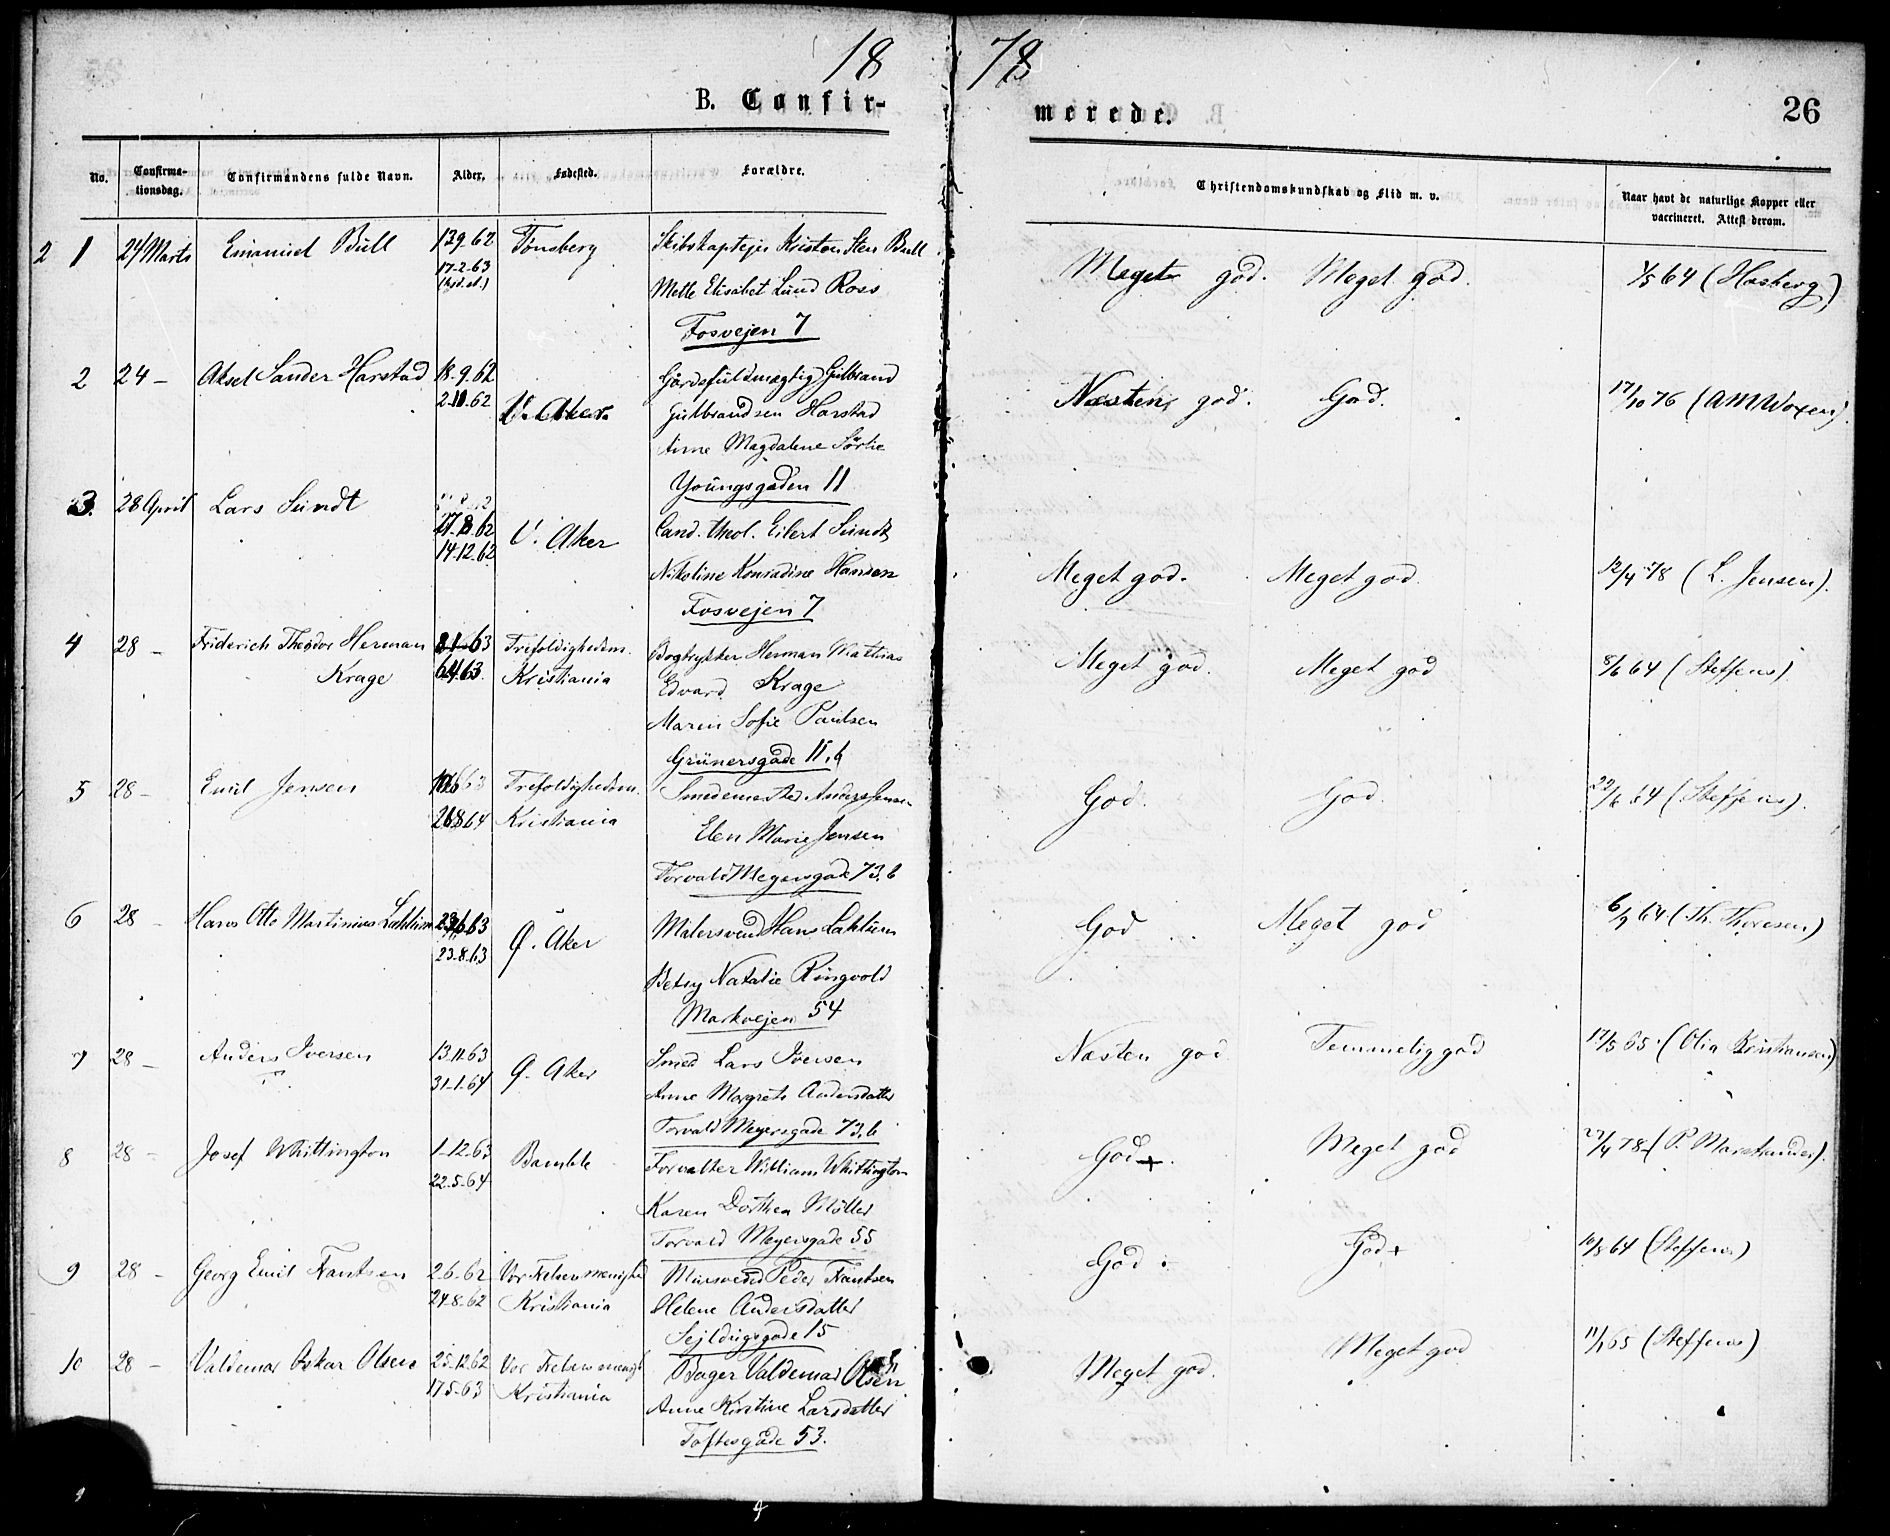 18 78
B. Confir- merede. 26
No. Confirma-tionsdag. Confirmandens fulde Navn. Alder. Fødested. Forældre. Christendomskundskab og Flid m. v. Naar havt de naturlige Kopper eller vaccineret. Attest derom.
2 1 24 Marts Emanuel Bull 13.9.62 Tønsberg Skibskaptejn Kristen Sten Bull
17-2-63
(hjd.st.) Mette Elisabet Lund Ross Meget god. Meget god. 1/5 64 (Hasberg)
Fosvejen 7
2 24 – Aksel Sander Harstad 18-9-62 Gårdsfuldmægtig Gulbrand
2-11-62 V. Aker. Gulbrandsen Harstad Næsten god. God. 17/10 76 (AM Woxen).
Anne Magdalene Sørlie
Youngsgaden 11
3. 28 April Lars Sundt
27-8-62 V. Aker Cand. theol. Eilert Sundt
14-12-62
Nikoline Konradine Hansen Meget god. Meget god. 12/4 78 (L. Jensen).
Fosvejen 7
4 28 – Friderich Theodor Herman 63 Trefoldighedsm. Bogtrykker Herman Mathias Meget god. Meget god 8/6 64 (Steffens)
Krage 63. Kristiania Edvard Krage
Maren Sofie Paulsen
Grünersgade 11.b
5 28 – Emil Jensen 63 Trefoldighedsm. Smedemester Anders Jensen God. God. 22/6 64 (Steffens).
64 Kristiania Elen Marie Jensen
Torvald Meyersgade 73.b
6 28 – Hans Otto Martinius Lahlum 63 Ø. Aker Malersvend Hans Lahlum God Meget god 6/9 64 (Th. Thoresen)
23-8-63
Betsy Natalie Ringvold
Markvejen 54
7 28 – Anders Iversen 13.11.63 Ø. Aker Smed Lars Iversen Næsten god Temmelig god 17/5 65. (Olia Kristiansen)
31-1-64 Anne Margrete Andersdatter
Torvald Meyersgade 73.b
8 28 – Josef Whittington 1-12-63 Bamble Forvalter William Whittington God +. Meget god 27/4 78 (P. Marstrander).
22-5-64 Karen Dorthea Møller
Torvald Meyersgade 55
9 28 – Georg Emil Frantsen 2-6-62 Vor Frelsers menighed Mursvend Peder Frantsen God. God + 10/8 64 (Steffens)
24-8-62 Kristiania Helene Andersdatter
Sejldugsgade 15
10 28 – Valdemar Oskar Olsen 25-12-62 Vor Frelsers menigh Bager Valdemar Olsen Meget god. Meget god 11/1 65 (Steffens)
17-5-63 Kristiania Anne Kirstine Larsdatter
Toftesgade 53.